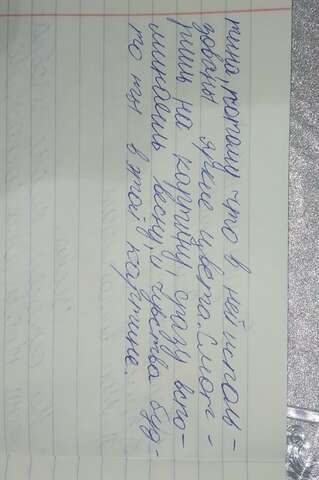 тина, потому что в ней исполь-
зовали яркие цвета. Смот-
ришь на картину, сразу вспо-
минаешь весну, и чувства буд-
то ты в этой картине.